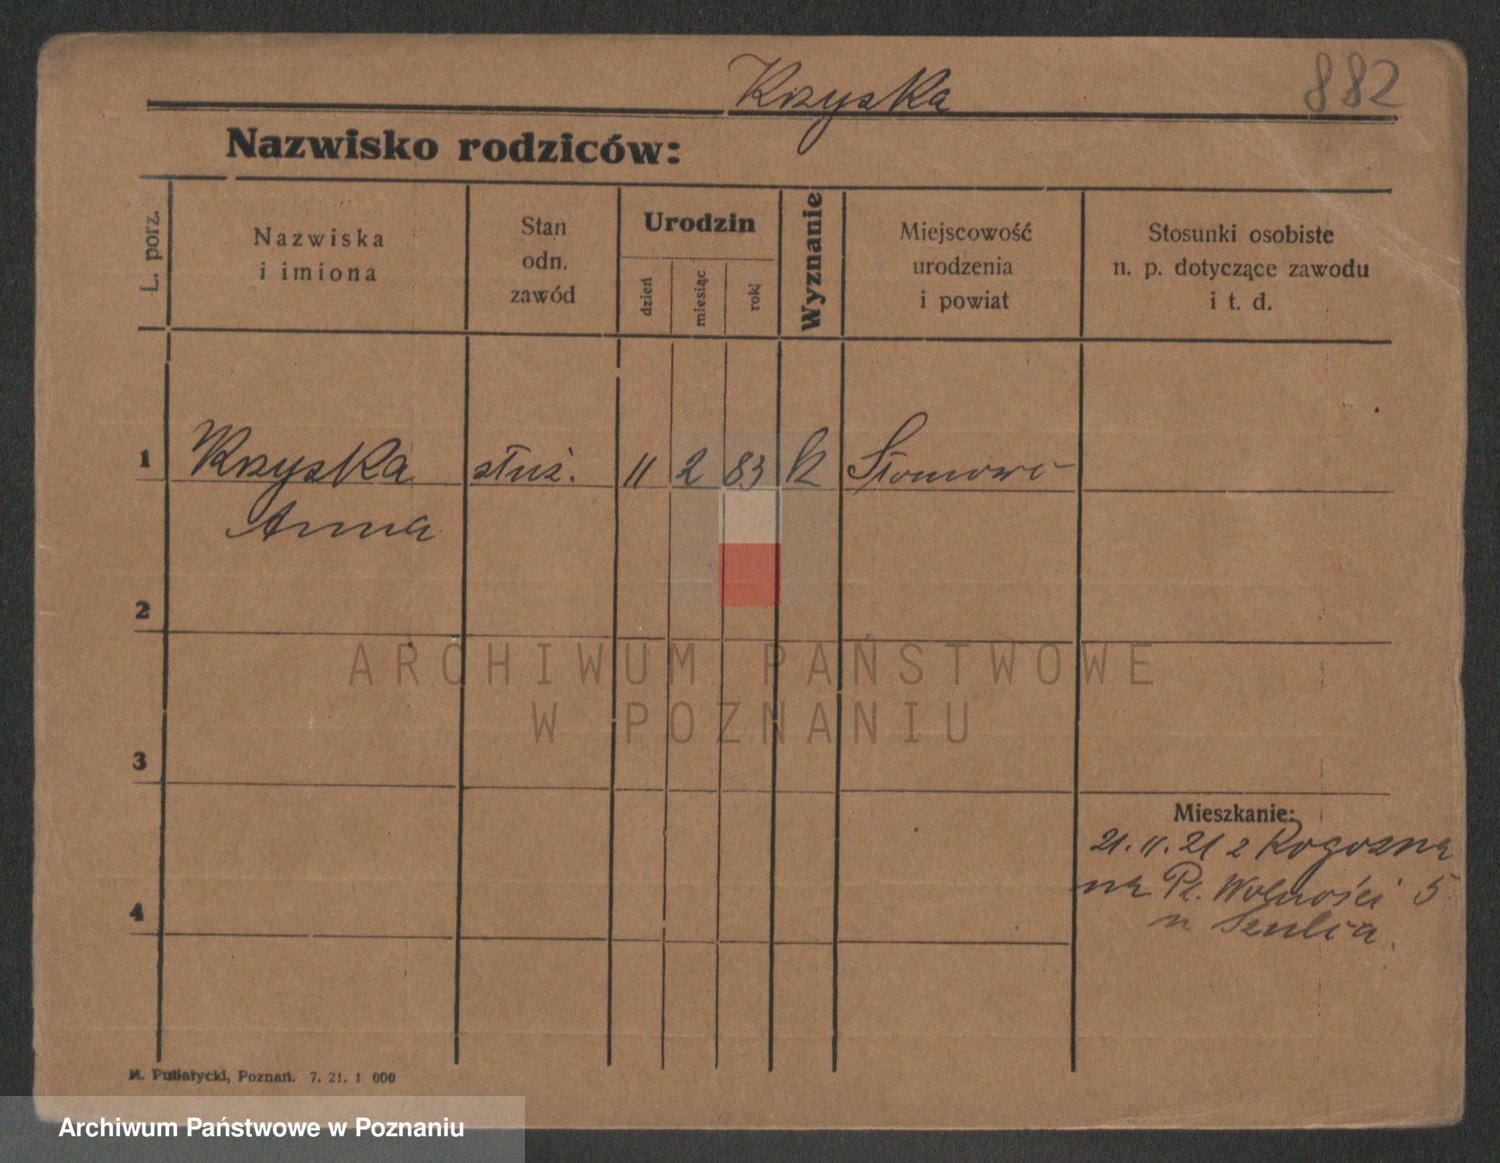 Krzyska
882
Nazwisko rodziców:
L. porz.
Nazwiska
i imiona
Stan
odn.
zawód
Urodzin
dzień
miesiąc
rok
Wyznanie
Miejscowość
urodzenia
i powiat
Stosunki osobiste
n. p. dotyczące zawodu
i t. d.
1 Krzyska służ. 11 2 83 k Słomowo
Anna
2
ARCHIWUM PAŃSTWOWE
W POZNANIU
3
Mieszkanie:
21. 11. 21 z Rogozna
na Pl. Wolności 5
u
4
M. Putiatycki, Poznań. 7. 21. 1 000
Archiwum Państwowe w Poznaniu